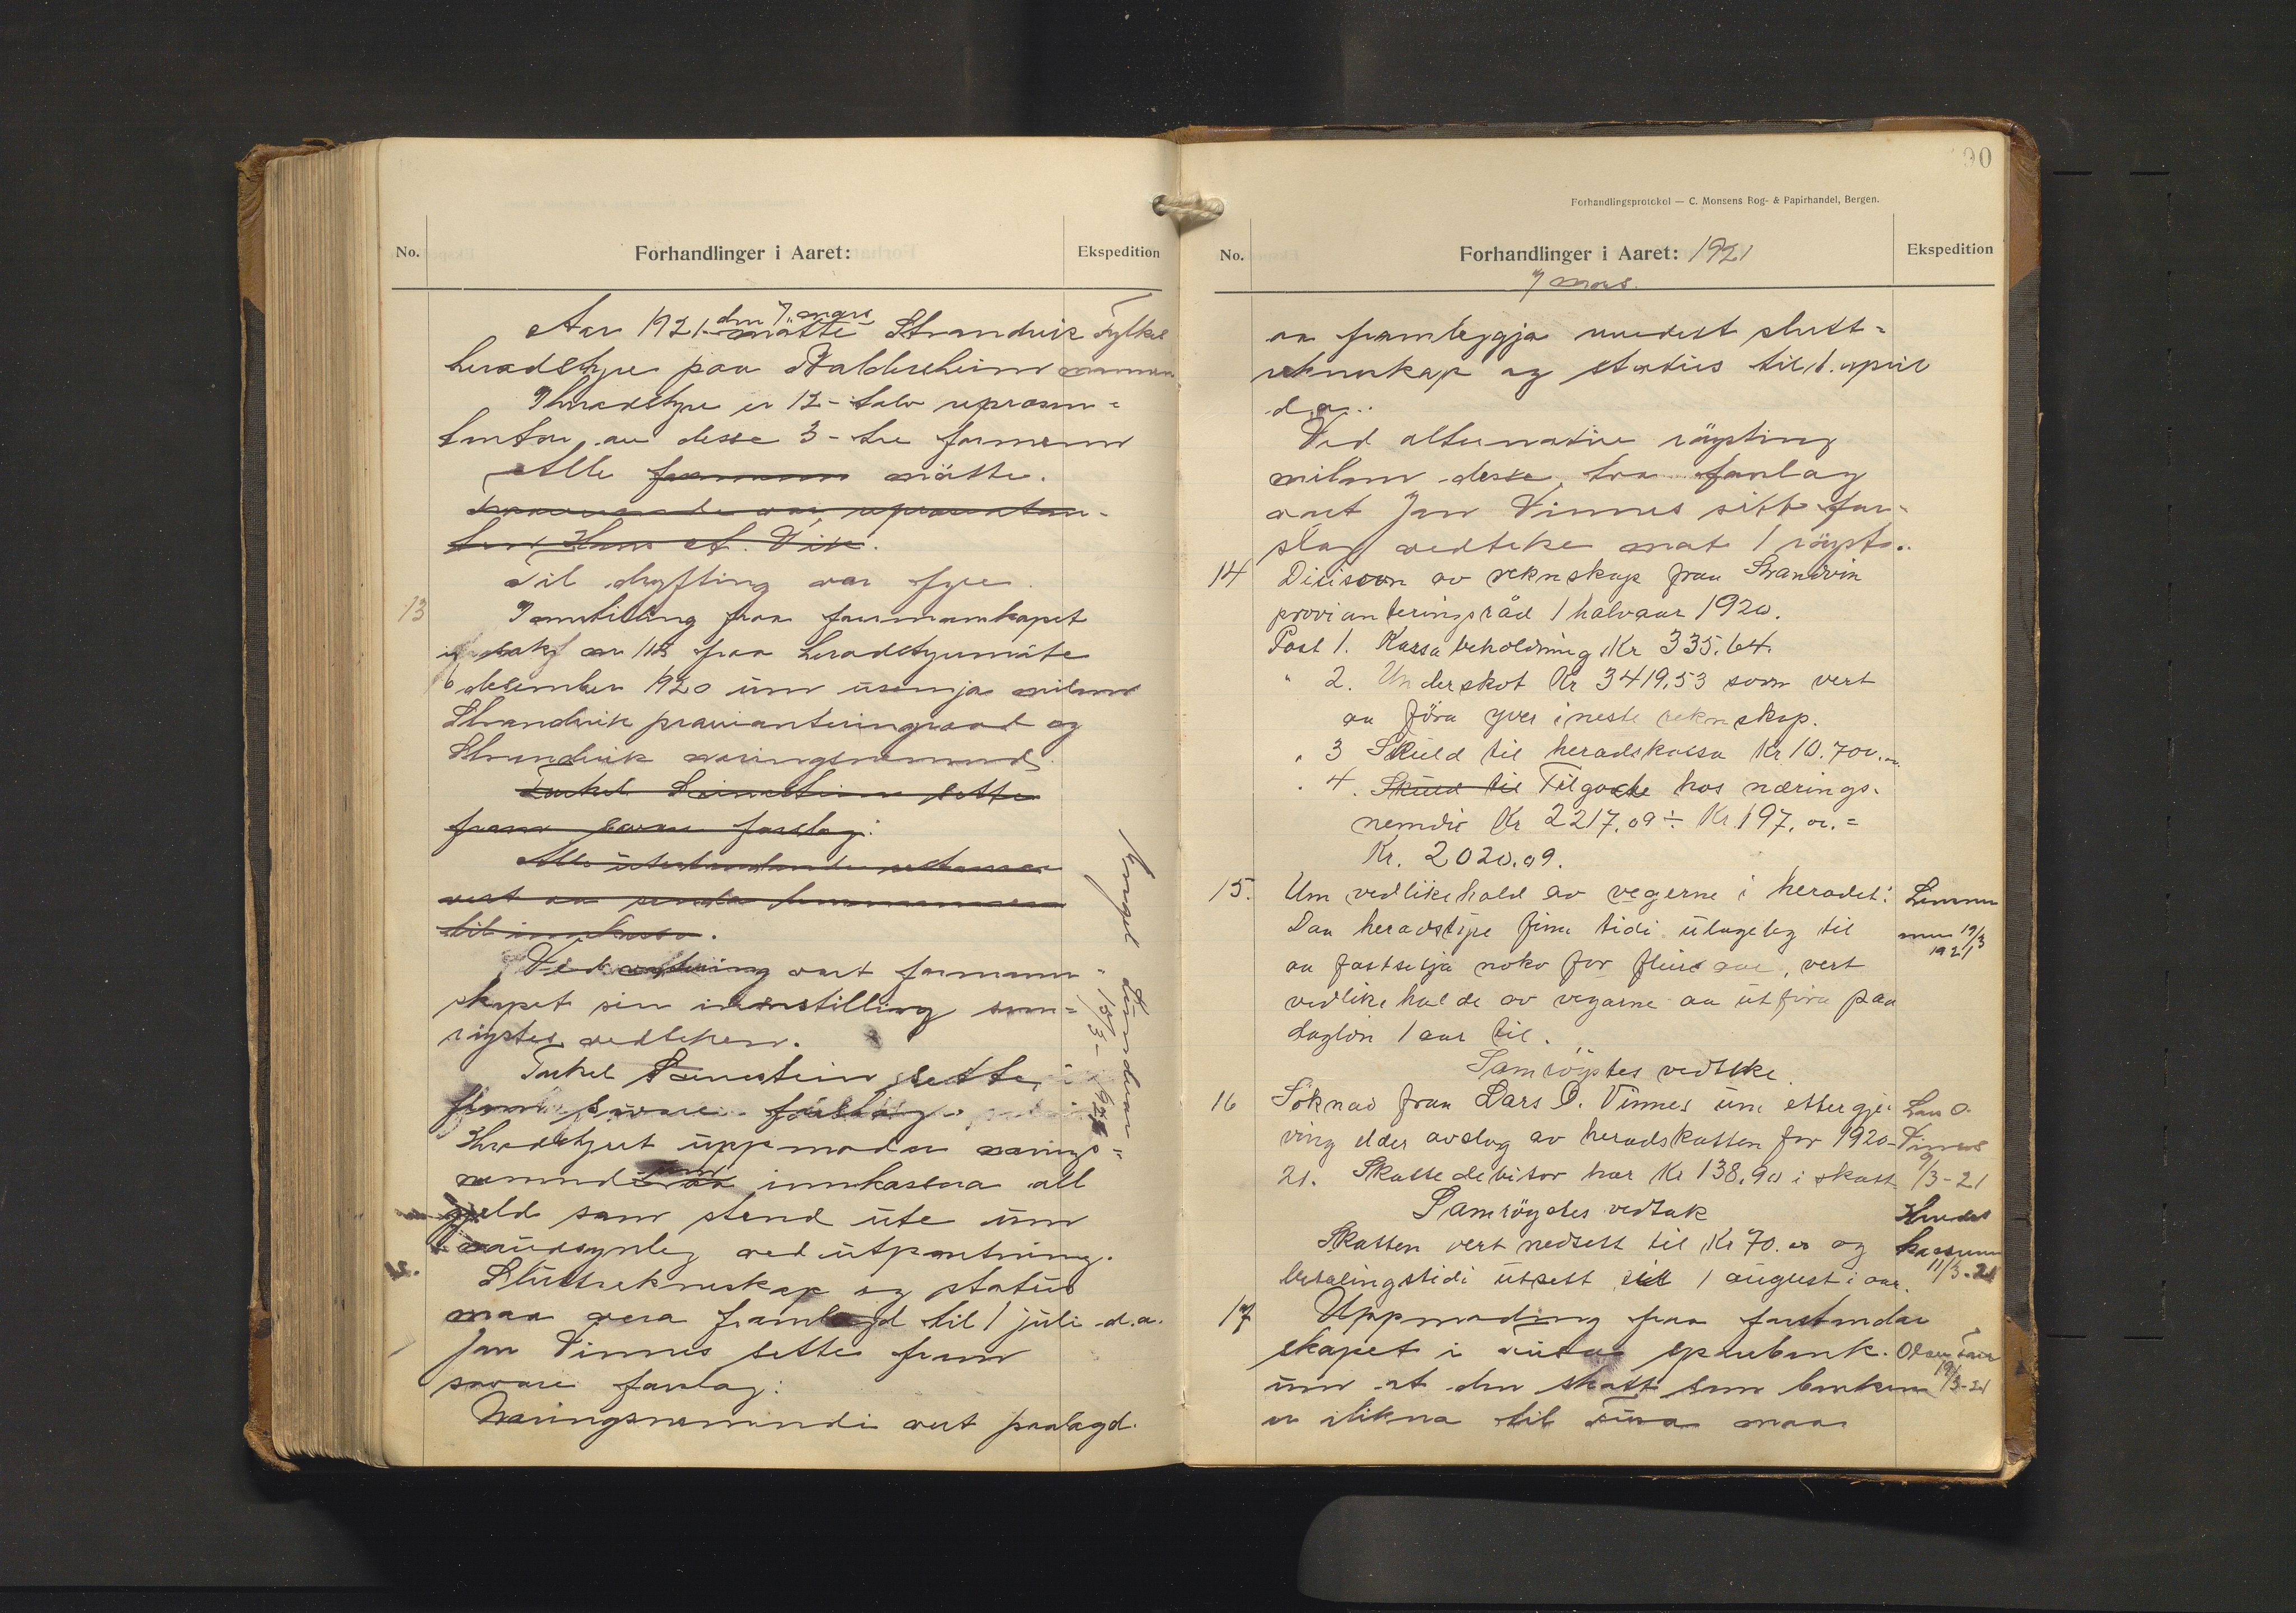 No.
Forhandlinger i Aaret:
Ekspedition
Aar 1921 den 7 mars mötte Strandvik
heradstyre paa Baldersheim
I heradstyre er 12 - tolv represen=
tantar, av desse 3 - tre formenn
Alle mötte.
Hans A. Vik.
Til dryfting var fyre
13
Innstilling fraa formannskapet
i sak nr 113 fraa heradstyremöte
6 desember 1920 um usemja millom
Strandvik provianteringsraad og
Strandvik næringsnemnd
Torkel Leinestein sette
fram sovore forslag:
Alle uteståande
vert aa senda lensmannen
til innkasso.
Ved röysting vart formann-
skapet sin innstilling sam=
röystes vedteken.
Torkel Leinestein sette
fram sovore forslag
Heradstyret uppmoder nærings=
nemnd um aa innkassera all
gjeld som stend ute um
naudsynleg ved utpantning.
Sluttrekneskap og status
maa vera framlagd til 1 juli d.a.
Jon Vinnes sette fram
sovore forslag:
Næringsnemndi vert paalagd
Fylkes
mannen
15/3 - 1921
90
Forhandlingsprotokol — C. Monsens Bog- & Papirhandel, Bergen.
No.
Forhandlinger i Aaret: 1921
7 mars.
Ekspedition
aa framleggja revidert slutt=
rekneskap og status til 1. april
d.a..
Ved alternativ röysting
millom desse tvo forslag
vart Jon Vinnes sitt for-
slag vedteke mot 1 röyst..
14
Dicisson av reknskap fraa Strandvik
provianteringsråd 1 halvaar 1920.
Post 1. Kassabeholdning Kr 335.64.
" 2. Underskot Kr 3419,53 som vert
aa föra yver i neste reknskap.
" 3 Skuld til heradskassa Kr 10.700.00
" 4. Skuld til Tilgode hos nærings-
nemdi Kr 2217,09 ÷ Kr 197,00 =
Kr. 2020.09.
15.
Um vedlikehald av vegerne i heradet:
Daa heradstyre finn tidi ulageleg til
aa fastsetja noko for fleire aar, vert
vedlikehalde av vegarne aa utföra paa
daglön 1 aar til.
Samröystes vedteke.
Lensmannen 19/3
1921
16
Söknad fraa Lars O. Vinnes um ettergje-
ving elder avslag av heradskatten for 1920-
21. Skattedebitor har Kr 138,90 i skatt
Samröystes vedtak
Skatten vert nedsett til Kr 70.00 og
betalingstidi utsett til 1 august i aar.
Lars O.
Vinnes
9/3-21
Herads
kasseren
11/3-21
17
Uppmoding fraa forstandar
skapet i Fusa sparebank
um at den skatt som banken
er ilikna til Fusa maa
19/3-21